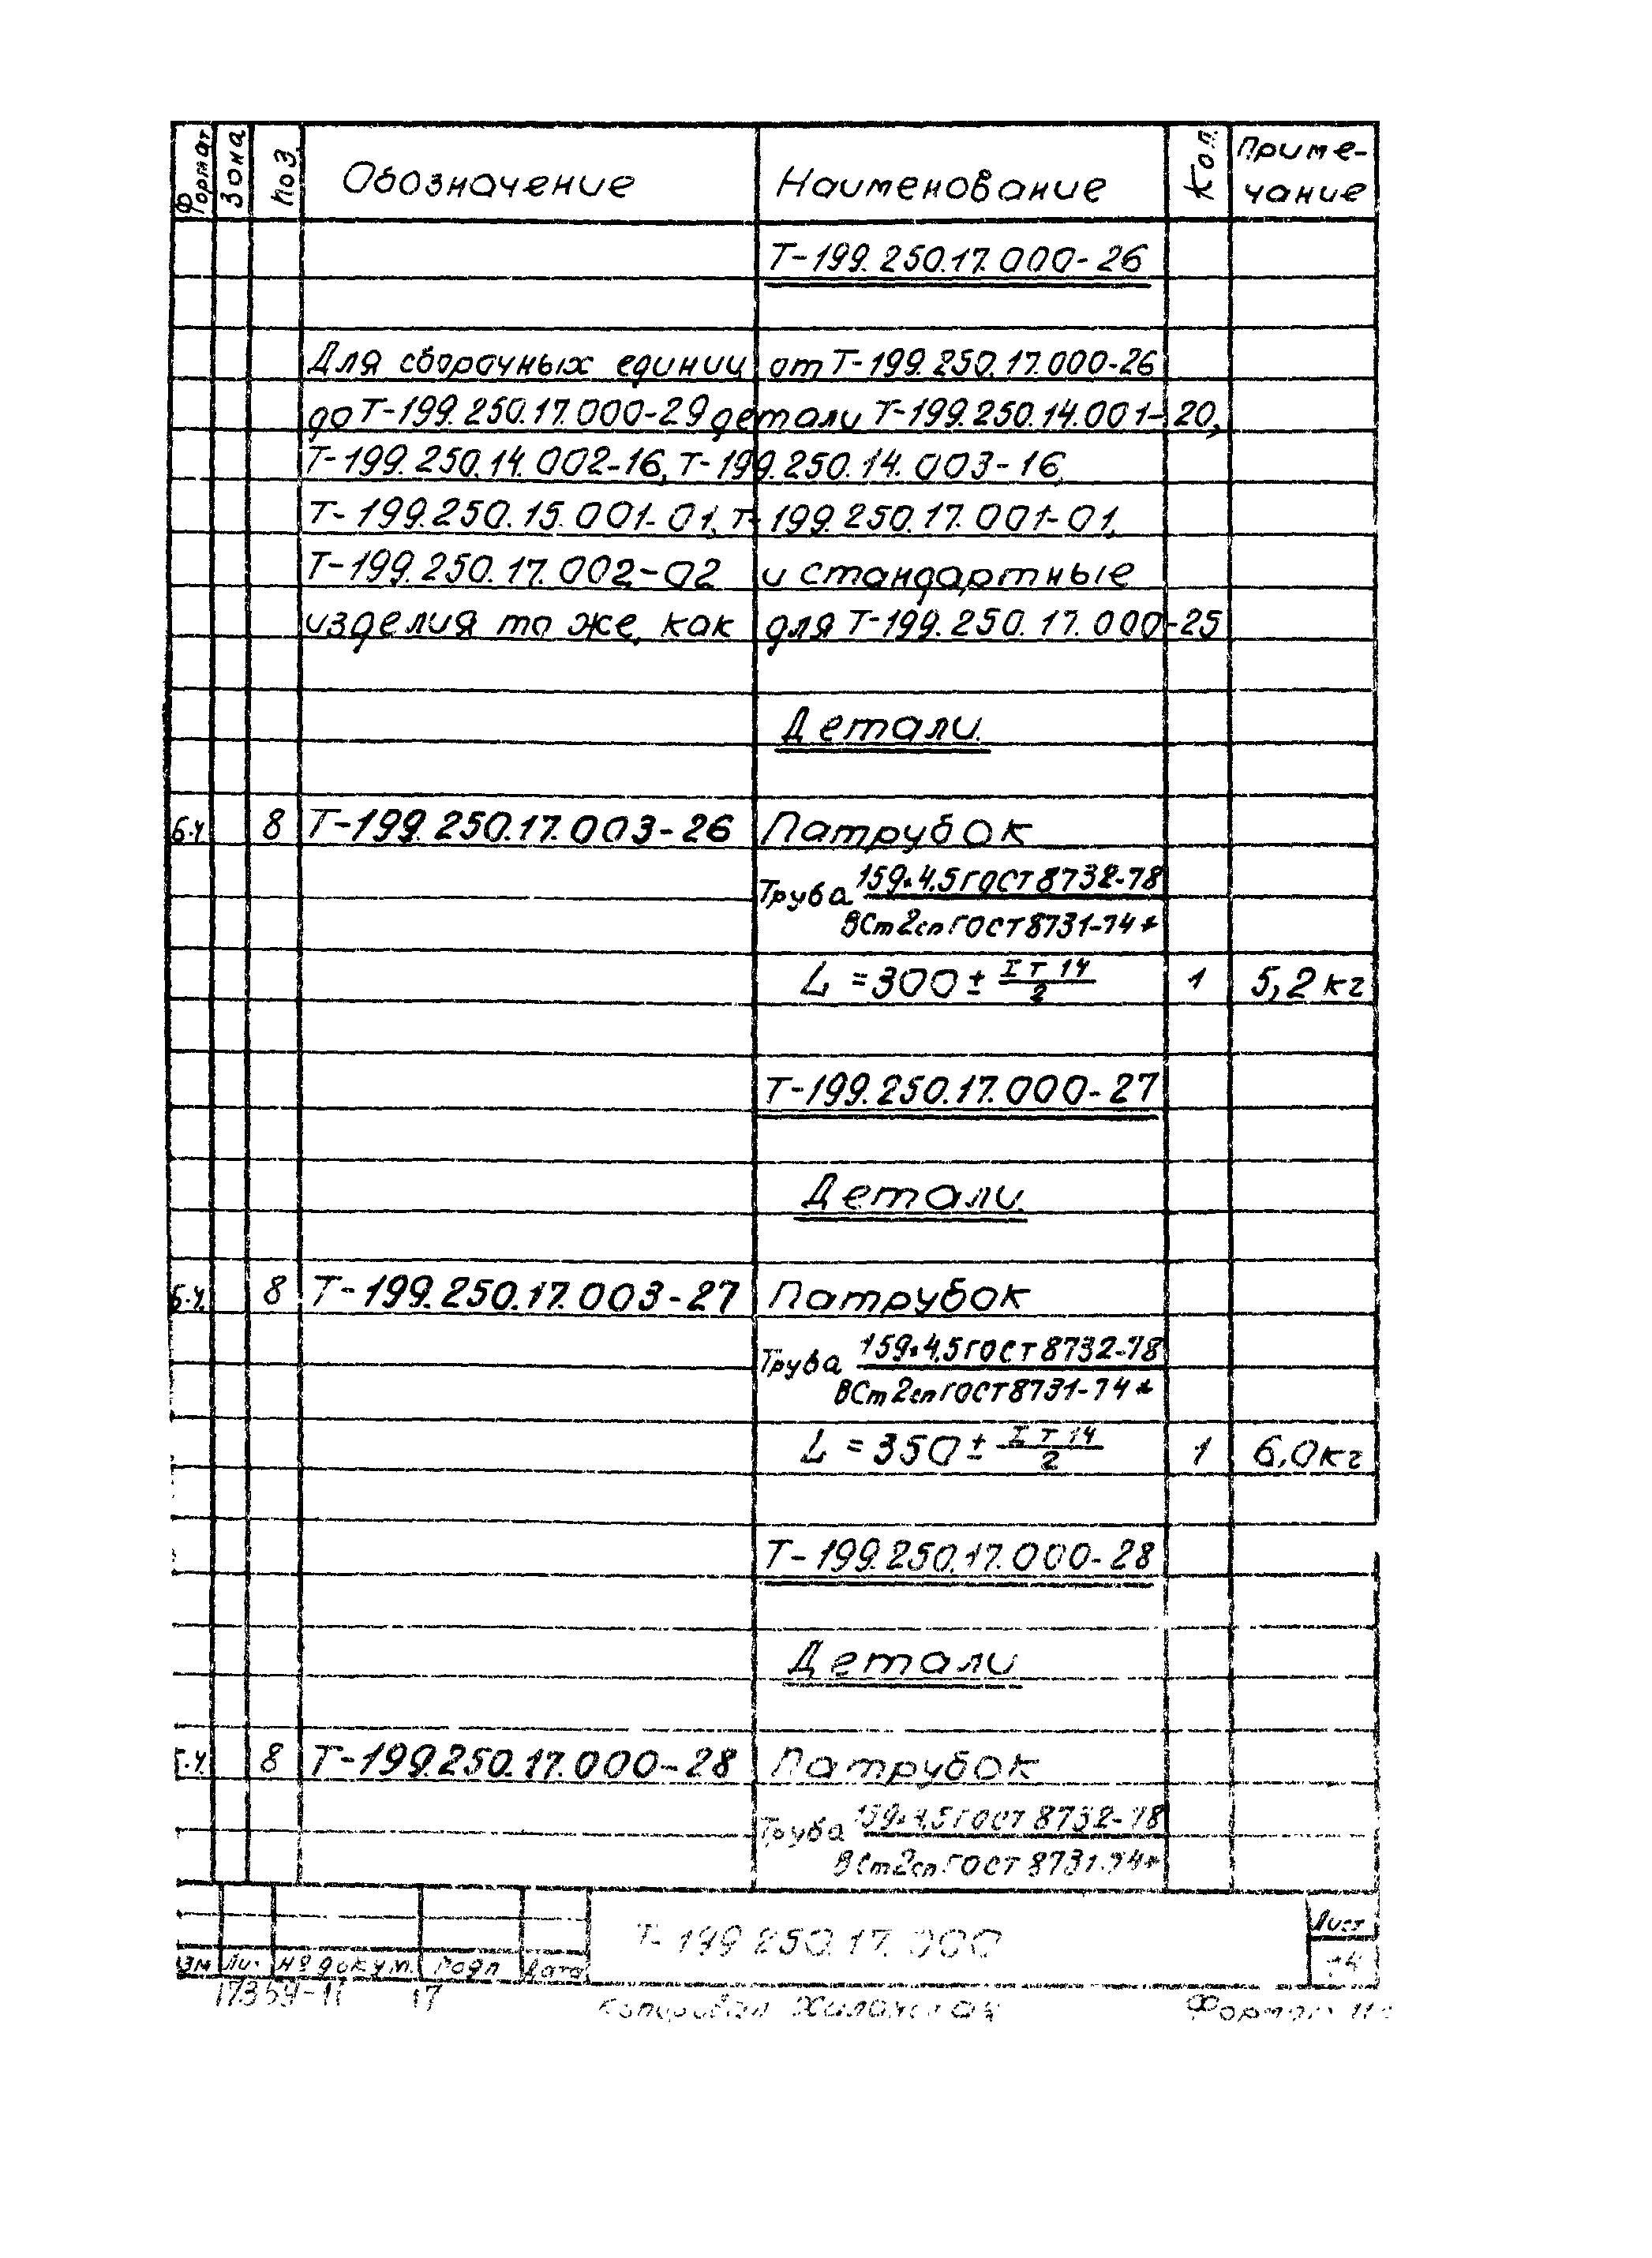 Формат Зона Поз. Обозначение Наименование Кол. Приме-
чание
Т-199.250.17.000-26
Для сборочных единиц от Т-199.250.17.000-26
до Т-199.250.17.000-29 детали Т-199.250.14.001-20,
Т-199.250.14.002-16, Т-199.250.14.003-16,
Т-199.250.15.001-01, Т-199.250.17.001-01,
Т-199.250.17.002-02 и стандартные
изделия то же, как для Т-199.250.17.000-25
Детали.
б.ч. 8 Т-199.250.17.003-26 Патрубок
Труба 159×4,5 ГОСТ 8732-78
ВСт2сп ГОСТ 8731-74*
L = 300 ± IT14/2 1 5,2 кг
Т-199.250.17.000-27
Детали.
б.ч. 8 Т-199.250.17.003-27 Патрубок
Труба 159×4,5 ГОСТ 8732-78
ВСт2сп ГОСТ 8731-74*
L = 350 ± IT14/2 1 6,0 кг
Т-199.250.17.000-28
Детали
б.ч. 8 Т-199.250.17.000-28 Патрубок
Труба 159×4,5 ГОСТ 8732-78
ВСт2сп ГОСТ 8731-74*
Т-199.250.17.000 Лист
Изм Лист № докум. Подп Дата
17359-11 17 Копировал Формат 11